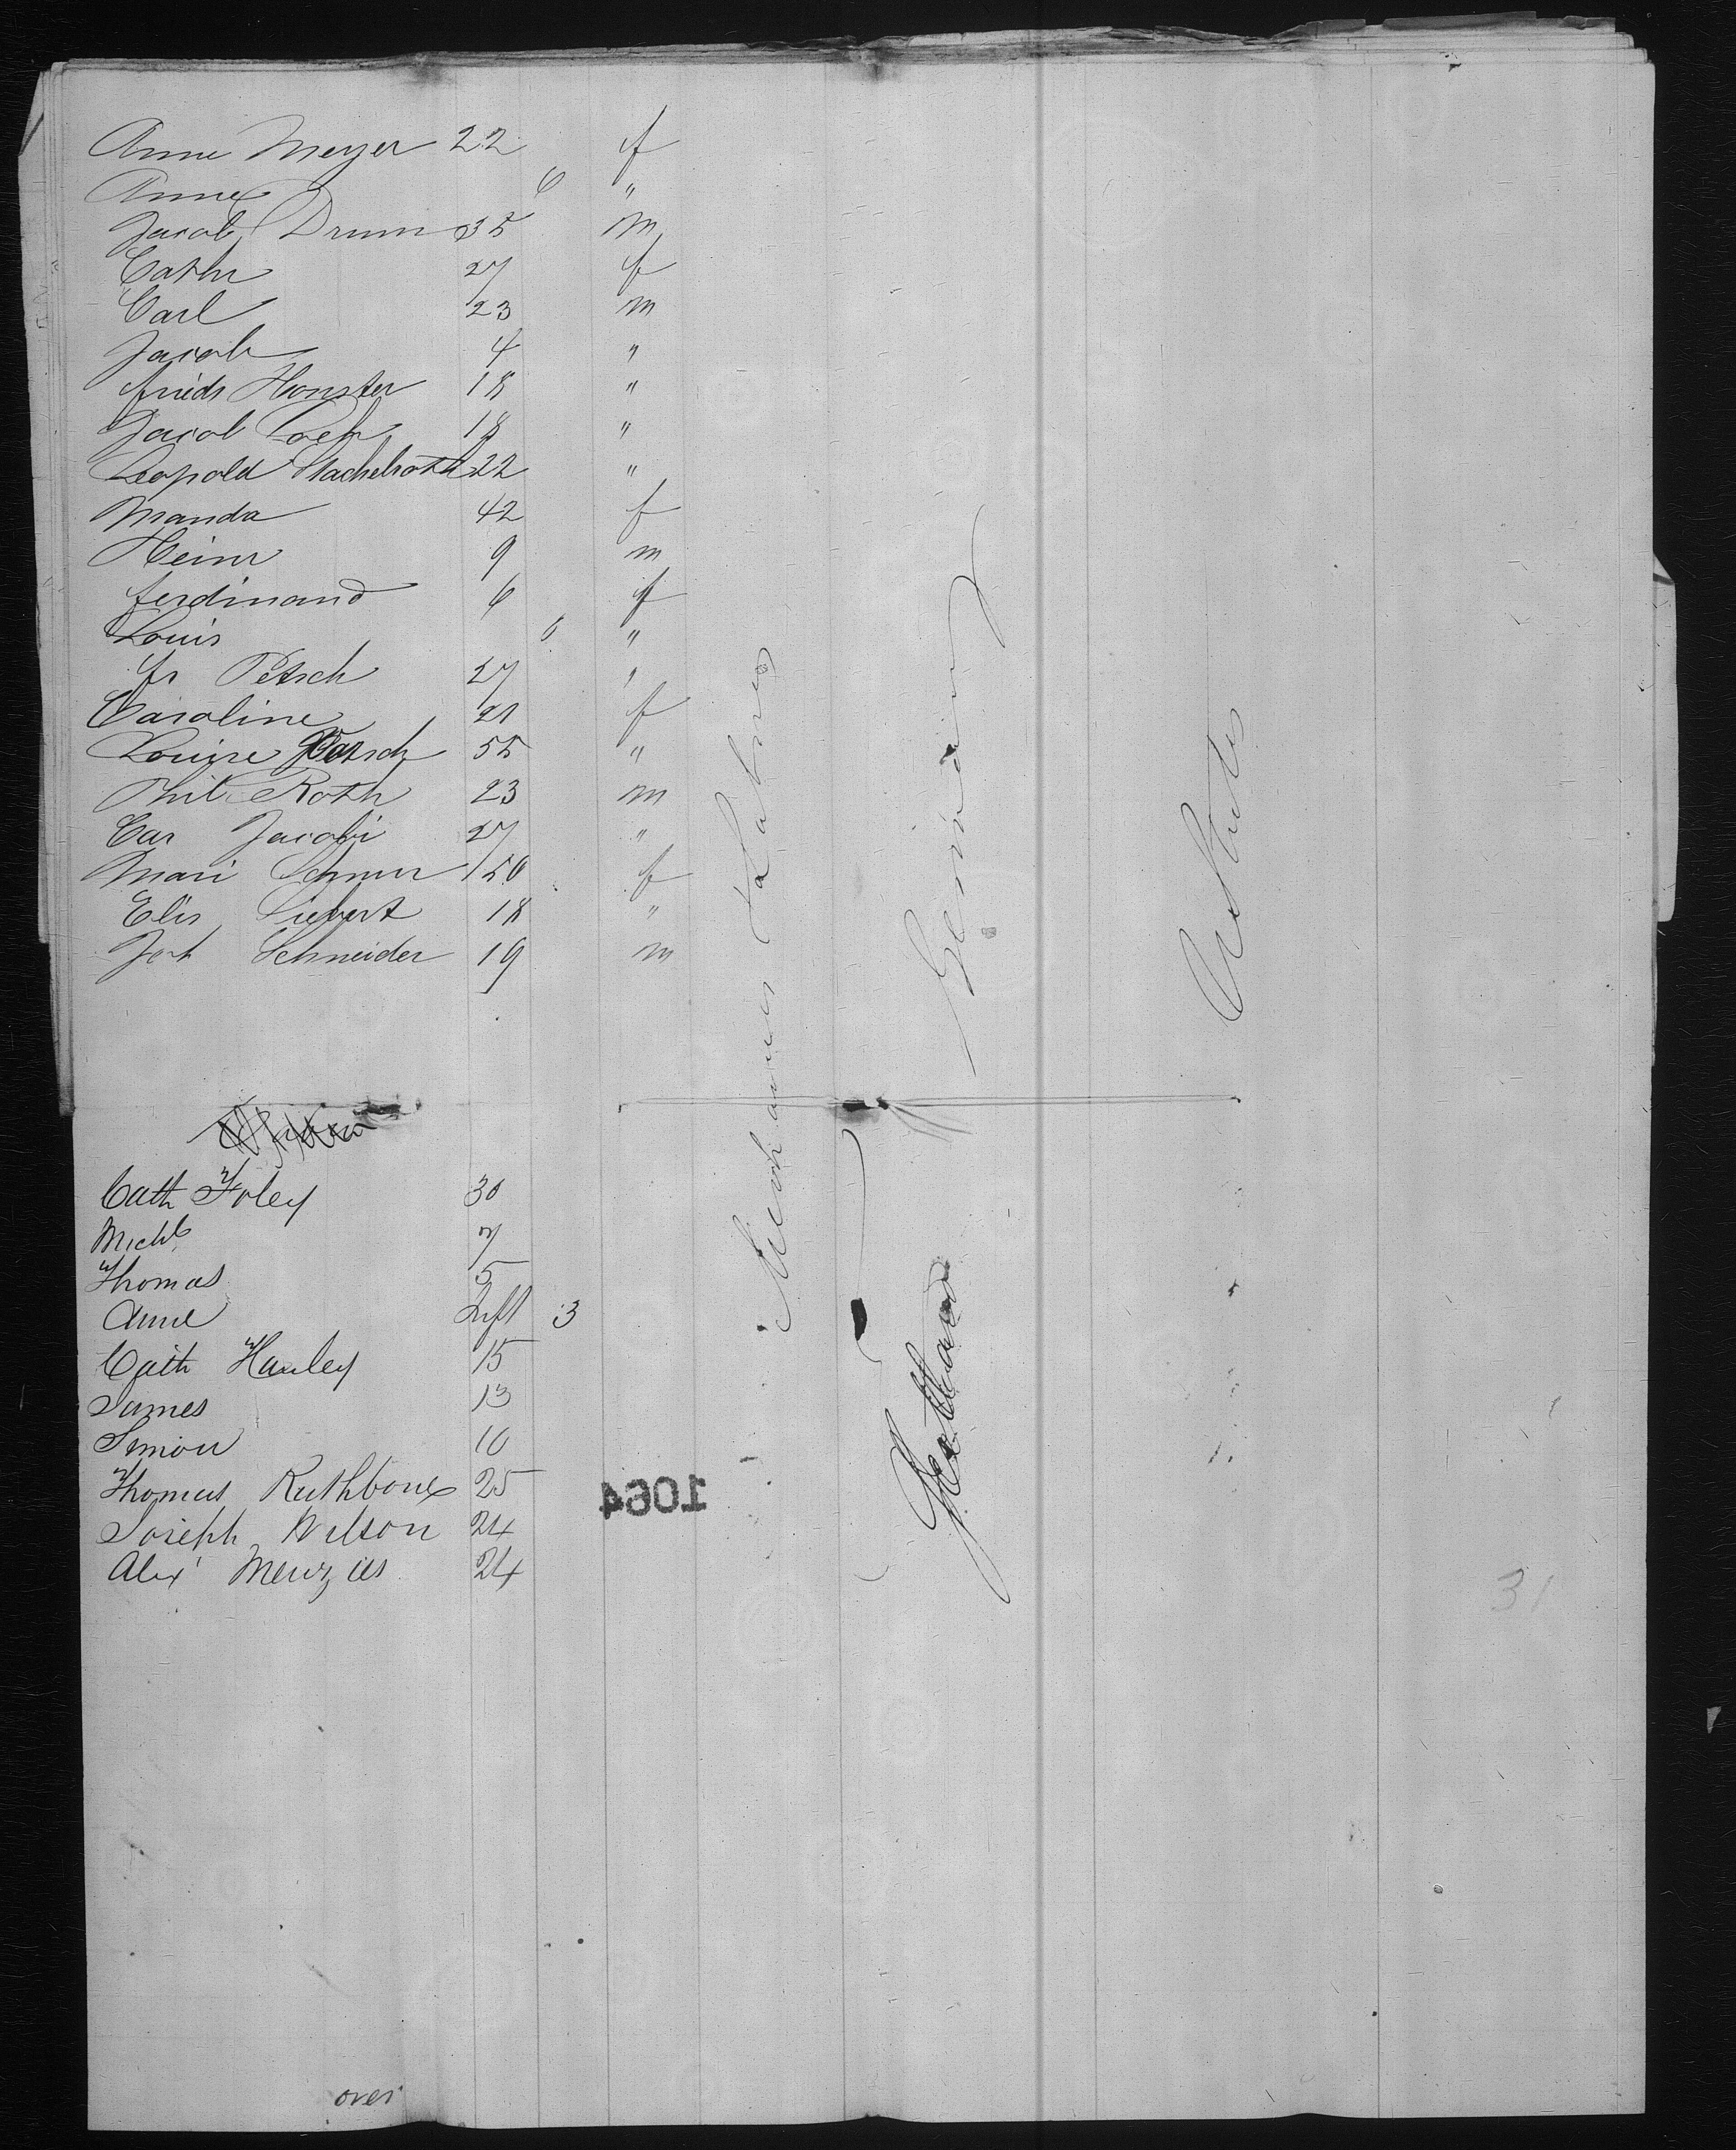 Anne Meyer 22 f
Anne 6 "
Jacob Drum 35 m
Cathr 27 f
Carl 23 m
Jacob 4 "
friedr Honster 18 "
Jacob 18 "
Leopold 22 "
Manda 42 f
Heinr 9 m
ferdinand 6 f
Louis 6 "
fr Petsch 27 "
Caroline 21 f
Louise Petsch 55 "
Phil Roth 23 m
Car Jacobi 27 "
Mari Schnur 50 f
Elis Siebert 18 "
Jos Schneider 19 m
Cath Foley 30
Michl 7
Thomas 5
Anne Inft 3
Cath Hanley 15
James 13
Simon 10
Thomas Rathbone 25
Joseph Wilson 24
Alex Menzies 24
over
Mechanics & Labrers
Germany
Scotland
U States
1064
31